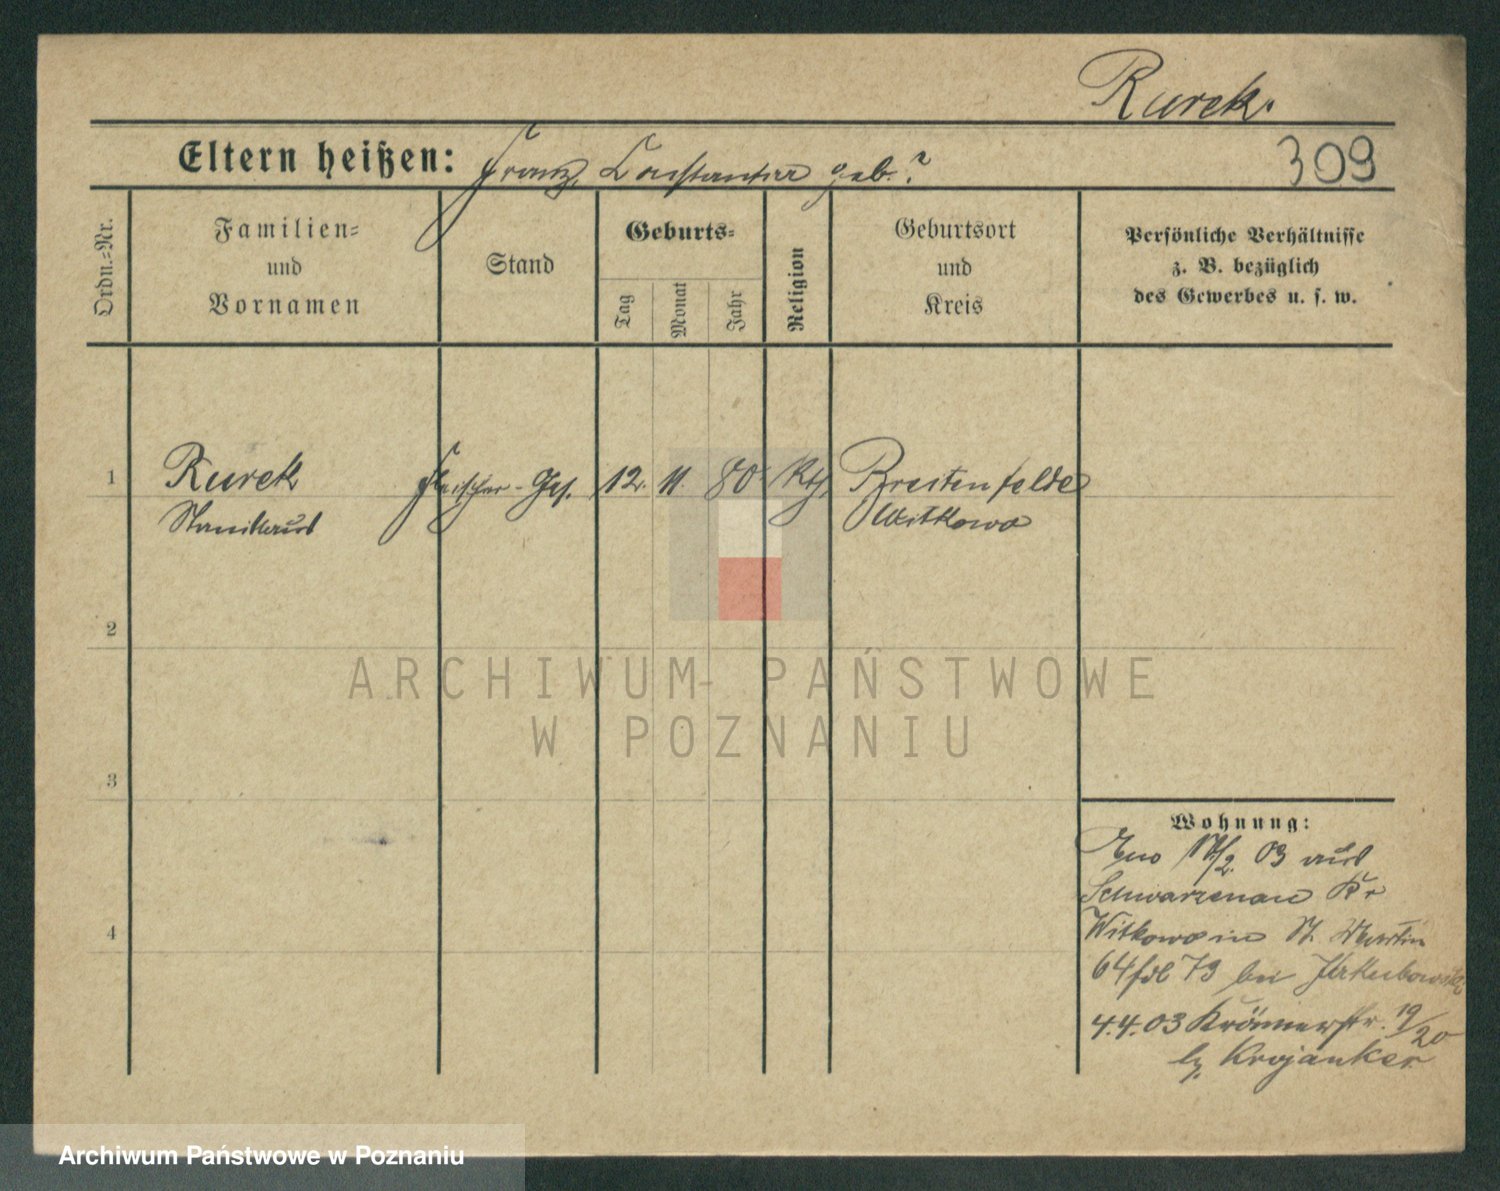 Rurek.
Eltern heißen: Franz, Constantia geb.?
309
Ordn.=Nr.
Familien=
und
Vornamen
Stand
Geburts=
Tag
Monat
Jahr
Religion
Geburtsort
und
Kreis
Persönliche Verhältnisse
z. B. bezüglich
des Gewerbes u. s. w.
1
Rurek
Stanislaus
Fleischer-Ges.
12. 11. 80
Kth.
Breitenfelde
Witkowo
2
3
4
Wohnung:
17/2 03 aus
Schwarzenau Kr
Witkowo in St. Martin
64 73 bei
4.4.03 19/20
Krojanker
ARCHIWUM PAŃSTWOWE
W POZNANIU
Archiwum Państwowe w Poznaniu